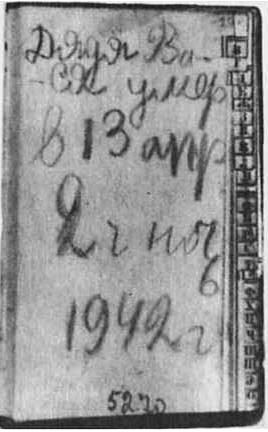 Дядя Ва-
-ся умер
в 13 апр
2 ч ноч
6
1942 г